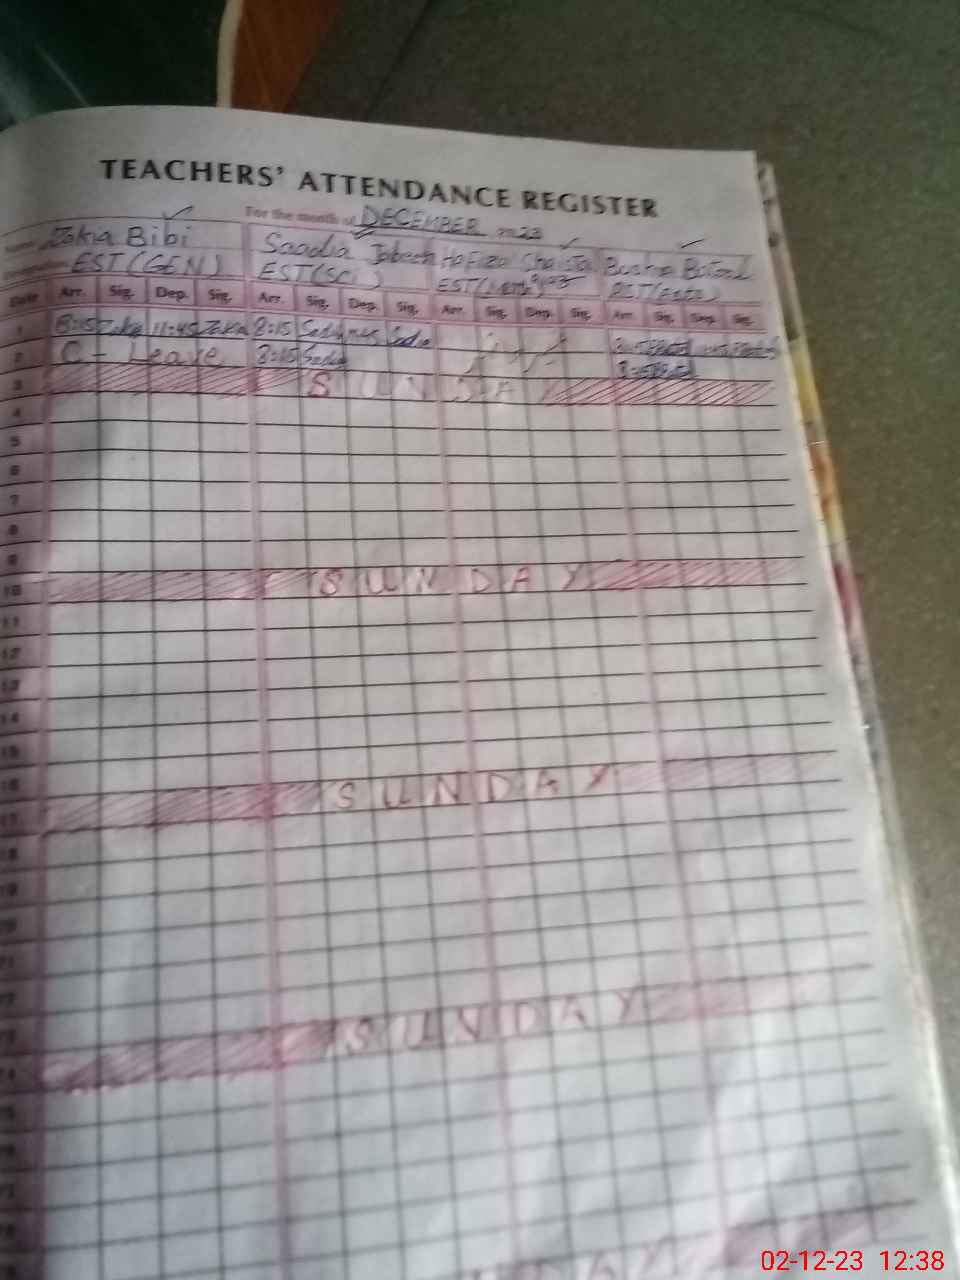 TEACHERS' ATTENDANCE REGISTER
For the month of DECEMBER 2023
Name Zakia Bibi Saadia Hafiza Shaista Bushra Batool
EST (GEN) EST (SCi) EST
Date Arr. Sig. Dep. Sig. Arr. Sig. Dep. Sig. Arr. Sig. Dep. Sig. Arr. Sig. Dep. Sig.
1 8:15 Zakia 11:45 Zakia 8:15 Sadia
2 C - Leave 8:15 Sadia
3 SUNDAY
4
5
6
7
8
9
10 SUNDAY
11
12
13
14
15
16
17 SUNDAY
18
19
20
21
22
23 SUNDAY
24
25
02-12-23 12:38